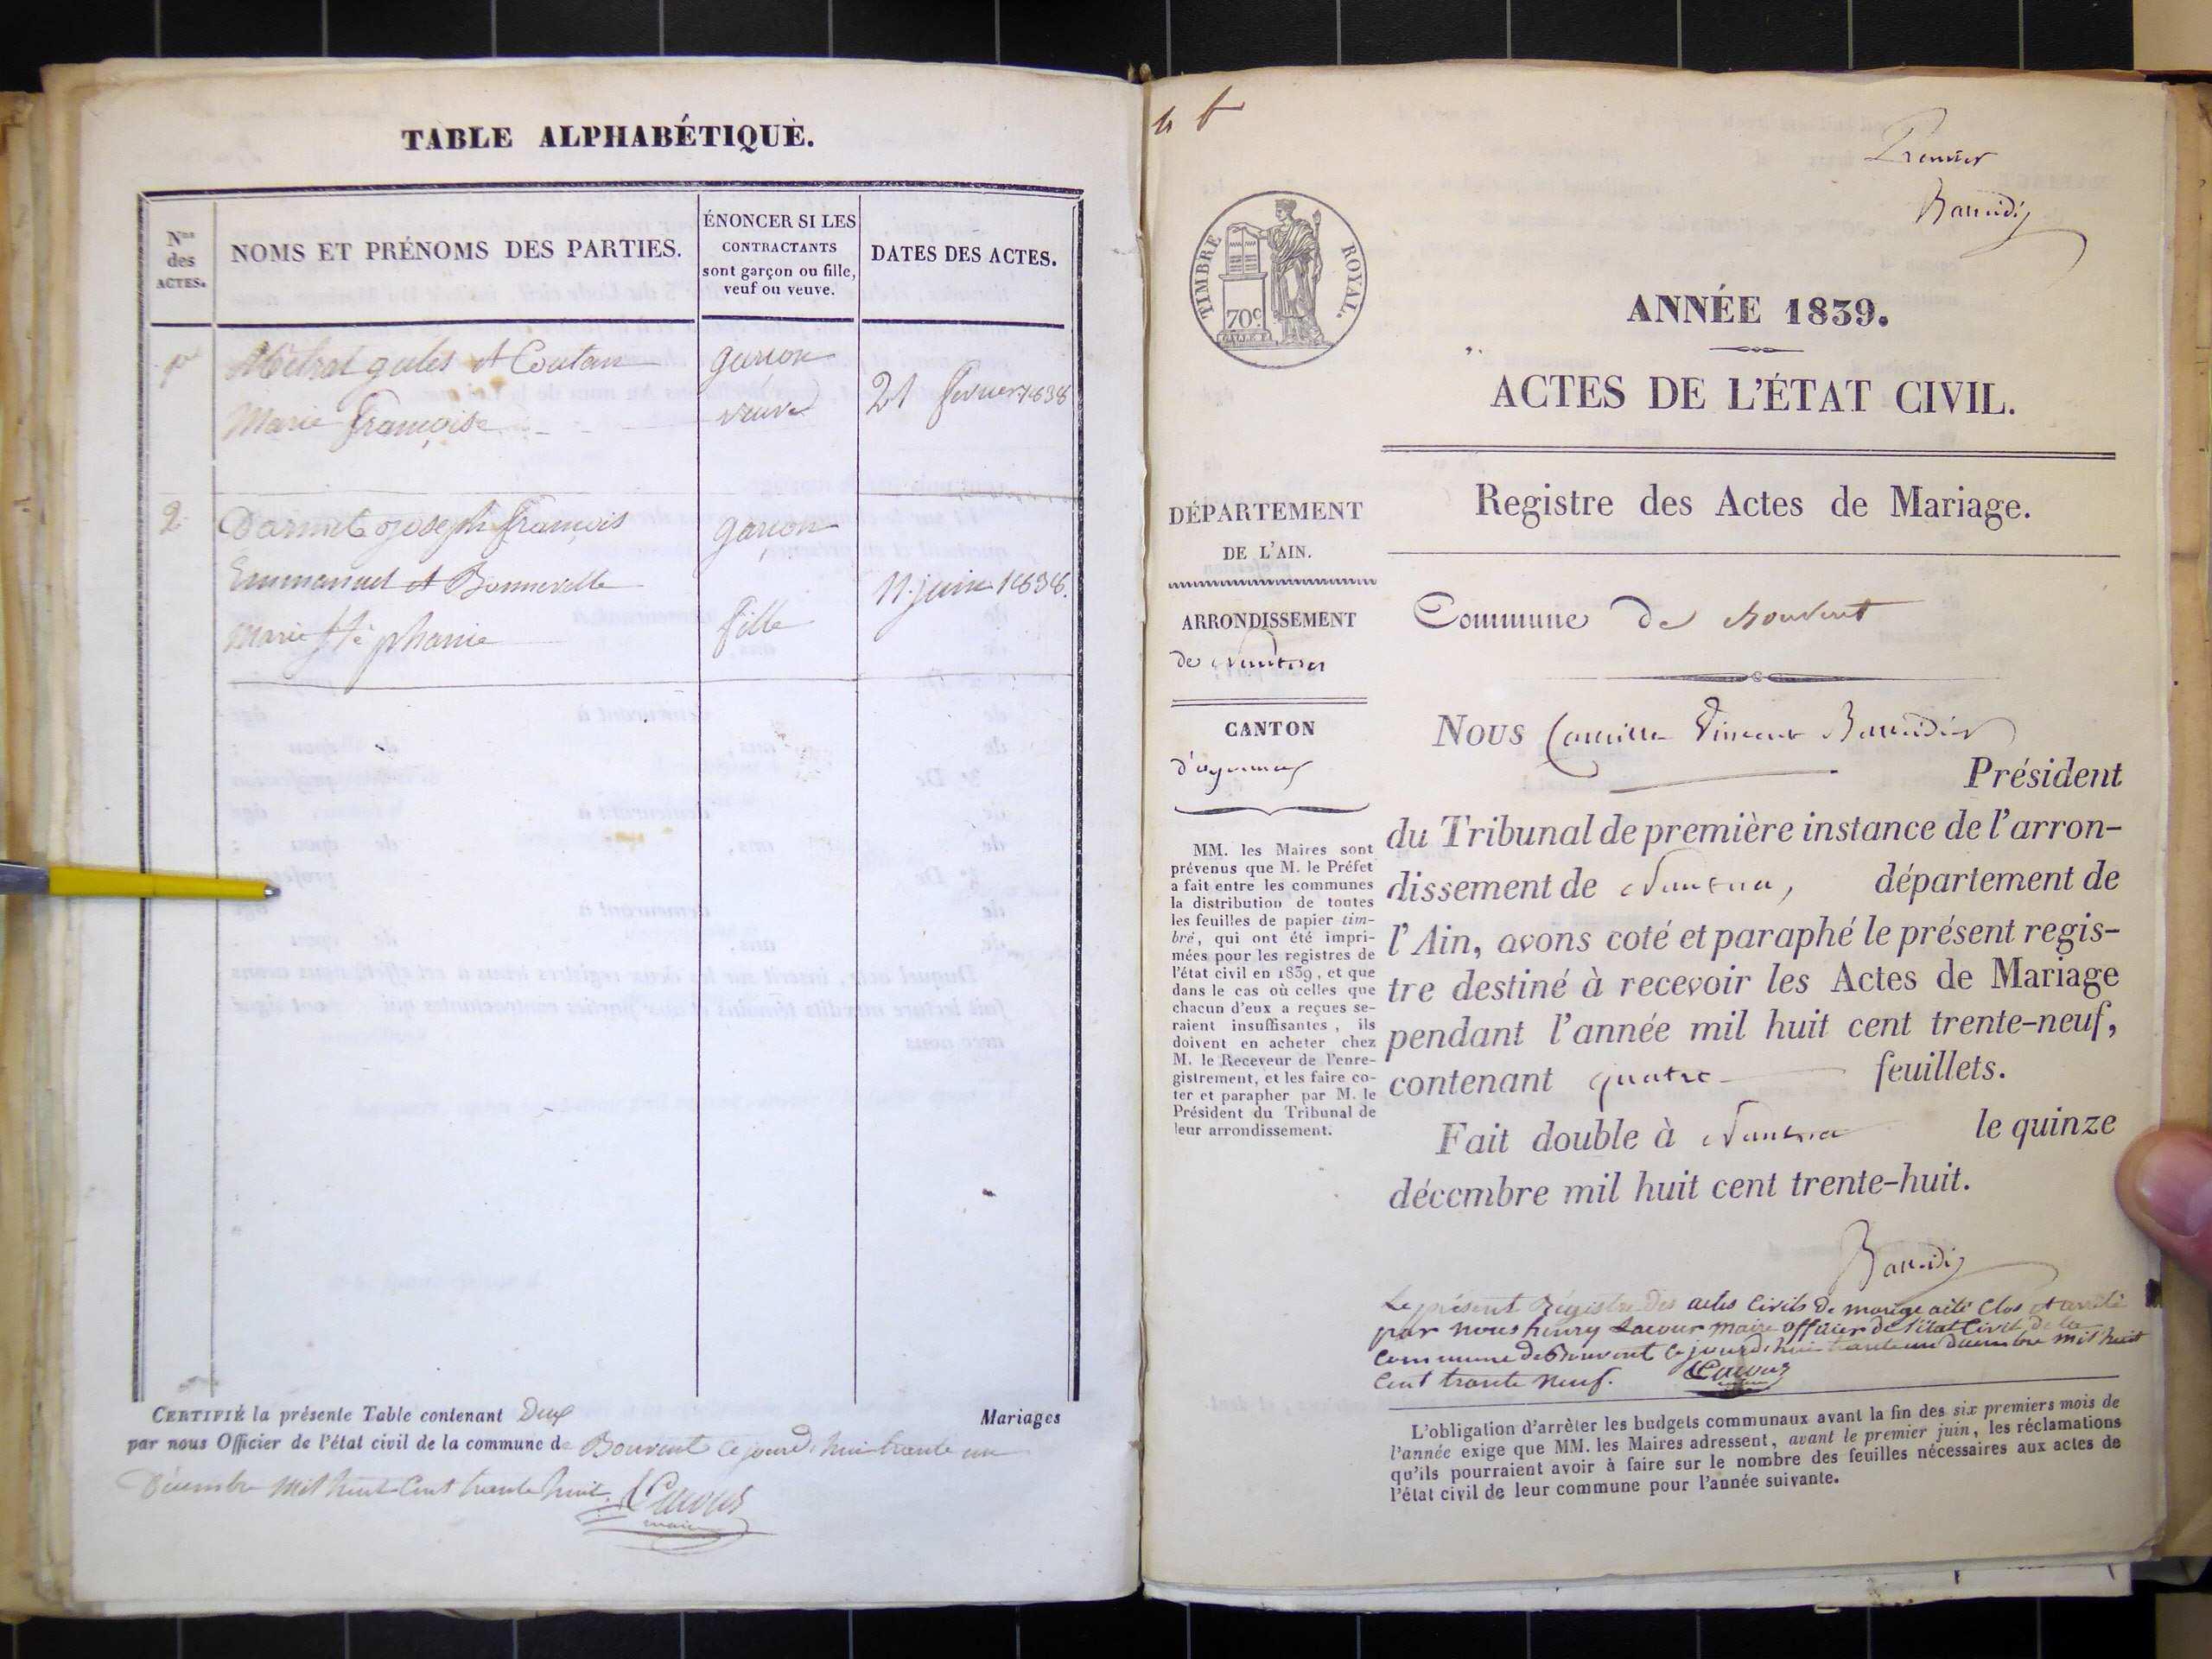 TABLE ALPHABÉTIQUE.
Nos des ACTES.
NOMS ET PRÉNOMS DES PARTIES.
ÉNONCER SI LES
CONTRACTANTS
sont garçon ou fille,
veuf ou veuve.
DATES DES ACTES.
Métrat gules et Coutan garçon
Marie françoise veuve 21 fevrier 1838
2 Darmet joseph françois garçon
Emmanuel et Bonneville 11 juin 1838.
Marie Stéphanie fille
CERTIFIÉ la présente Table contenant Deux Mariages
par nous Officier de l'état civil de la commune de Bouvent ce jourd'hui trante un
Décembre mil huit Cent trante huit. Lacour
maire
Premier
Barridis
TIMBRE ROYAL.
70c
ANNÉE 1839.
ACTES DE L'ÉTAT CIVIL.
Registre des Actes de Mariage.
DÉPARTEMENT
DE L'AIN.
ARRONDISSEMENT
de Nantua
CANTON
d'oyonnax
MM. les Maires sont
prévenus que M. le Préfet
a fait entre les communes
la distribution de toutes
les feuilles de papier tim-
bré, qui ont été impri-
mées pour les registres de
l'état civil en 1839, et que
dans le cas où celles que
chacun d'eux a reçues se-
raient insuffisantes, ils
doivent en acheter chez
M. le Receveur de l'enre-
gistrement, et les faire co-
ter et parapher par M. le
Président du Tribunal de
leur arrondissement.
Commune de Bouvent
Nous Camille Vincent
Président
du Tribunal de première instance de l'arron-
dissement de Nantua, département de
l'Ain, avons coté et paraphé le présent regis-
tre destiné à recevoir les Actes de Mariage
pendant l'année mil huit cent trente-neuf,
contenant quatre feuillets.
Fait double à Nantua le quinze
décembre mil huit cent trente-huit.
Barridis
Le présent Régistre des actes Civils de mariage aété Clos et arrêté
par nous henry Lacour maire officier de l'état Civil de la
Commune de Bouvent ce jourd'hui trante un Decembre mil huit
Cent trante neuf. Lacour
L'obligation d'arrêter les budgets communaux avant la fin des six premiers mois de
l'année exige que MM. les Maires adressent, avant le premier juin, les réclamations
qu'ils pourraient avoir à faire sur le nombre des feuilles nécessaires aux actes de
l'état civil de leur commune pour l'année suivante.